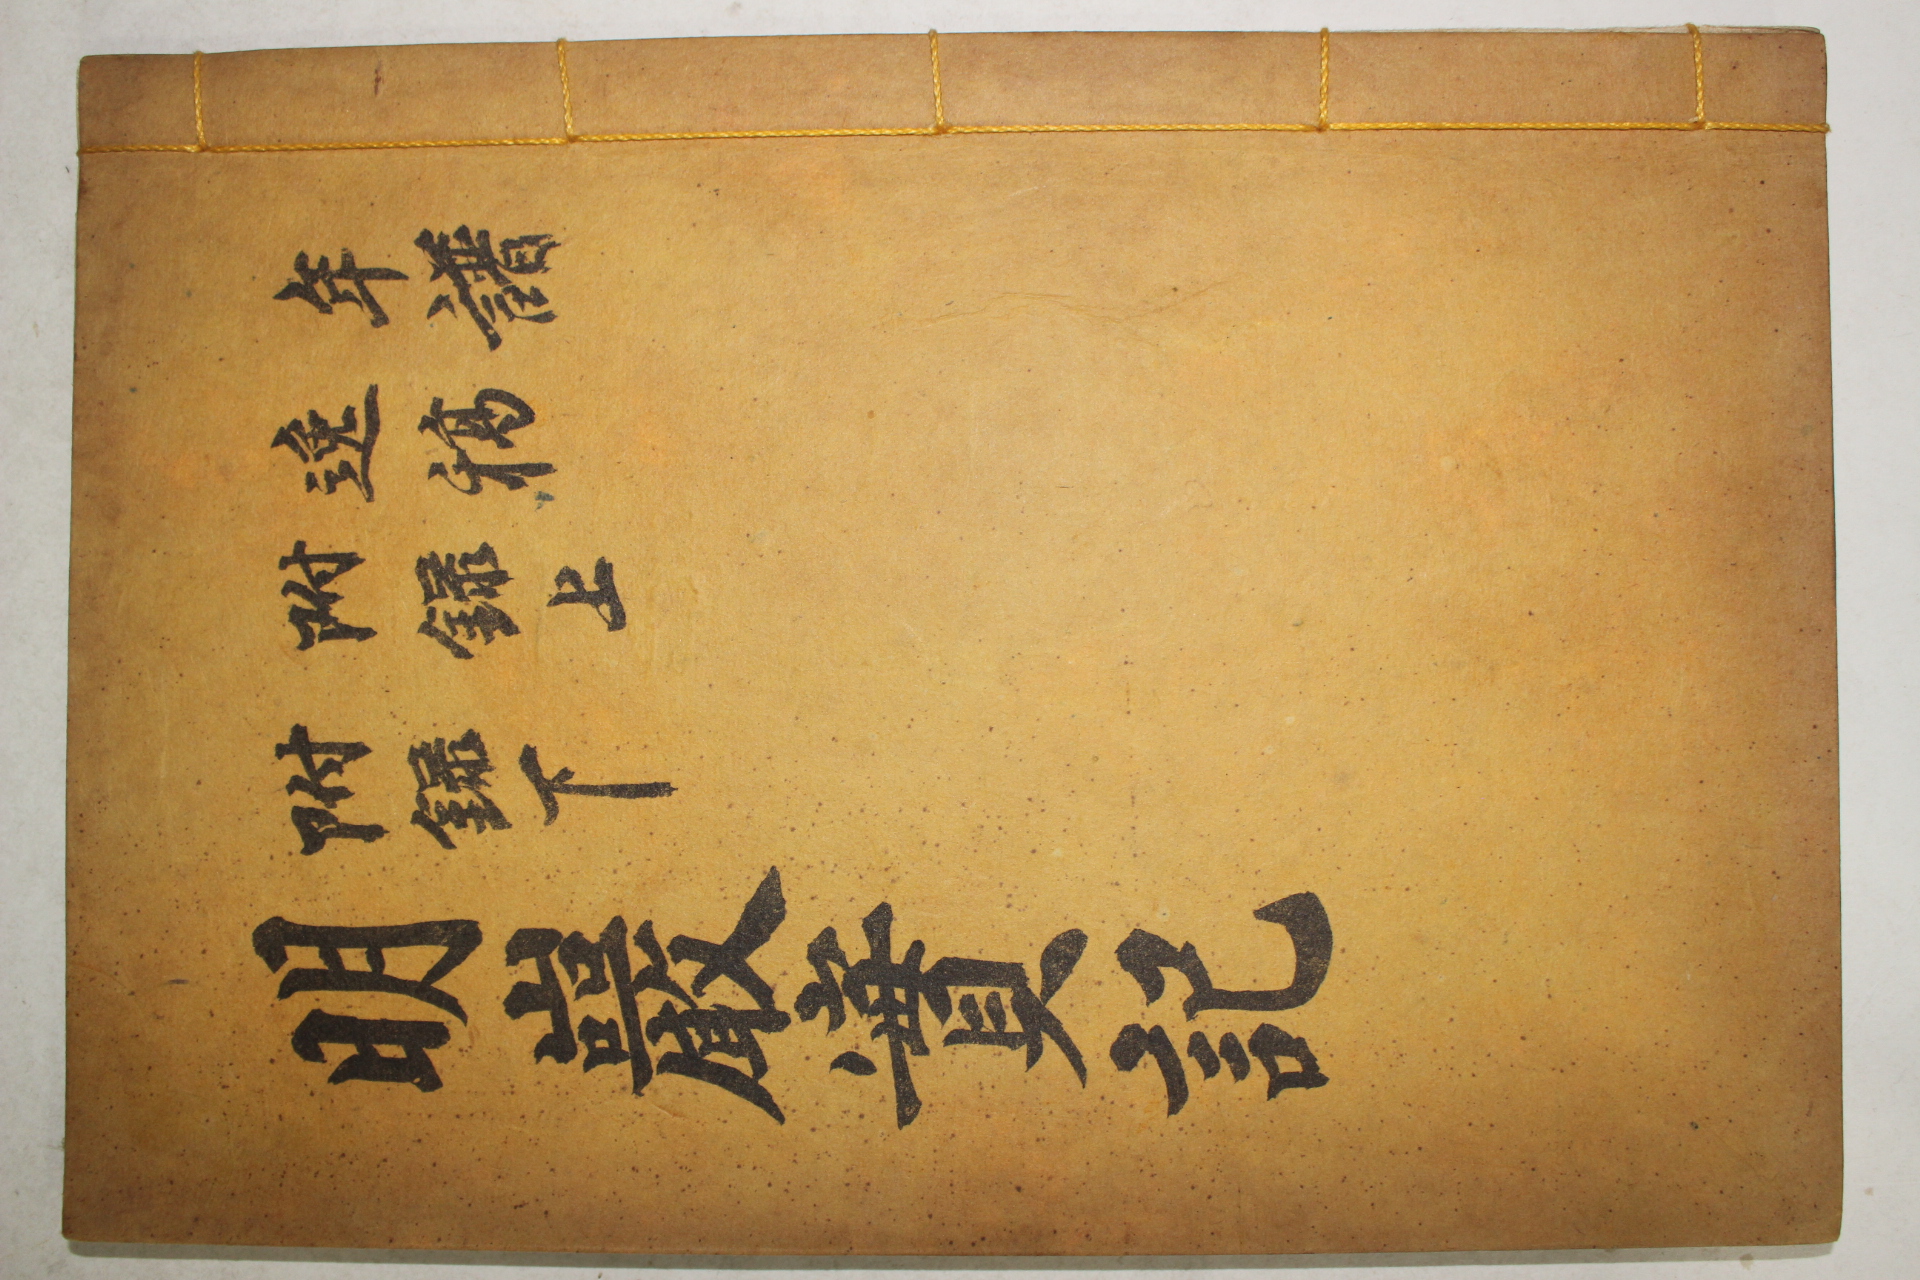 年譜
逸稿
附録上
附録下
明巖實記